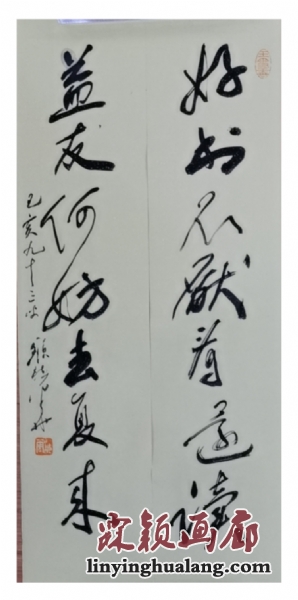 好书不厭看還讀
益友何妨去复来
己亥九十三叟
霖颖画廊
linyinghualang.com